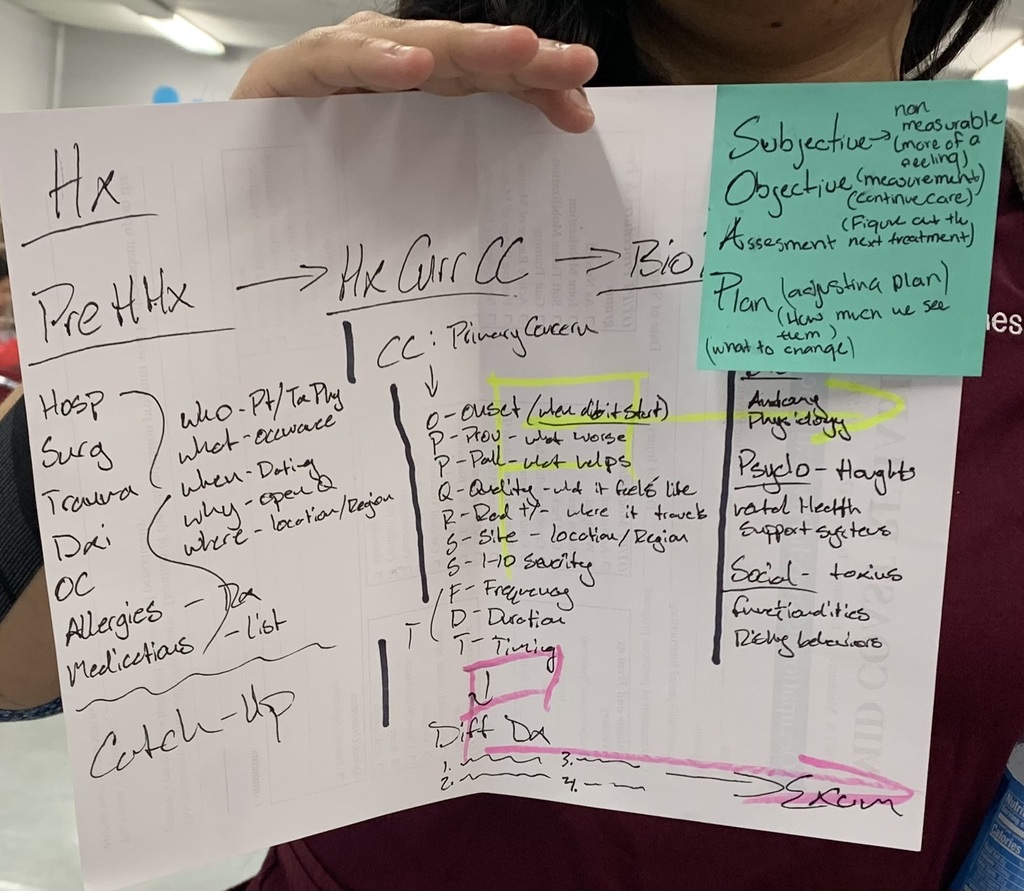 Hx
PreHHx → Hx Curr CC → Bio
Hosp
Surg
Trauma
Dxi
OC
Allergies - Rx
Medications - list
who - Pt/Tx Phy
what - occurance
when - Dating
why - open Q
where - location/Region
Catch-Up
CC: Primary Concern
O - onset (when did it start)
P - Prov - what worse
P - Pall - what helps
Q - Quality - what it feels like
R - Rad +/- where it travels
S - Site - location/Region
S - 1-10 Severity
F - Frequency
D - Duration
T - Timing
T
Diff Dx
1. 3.
2. 4.
Exam
Anatomy
Physiology
Psycho - thoughts
Health
Support systems
Social - toxins
functionalities
Risky behaviors
Subjective → non
measurable
(more of a
feeling)
Objective (measurement)
(continue care)
Assesment (Figure out the
next treatment)
Plan (adjusting plan)
(How much we see
them)
(what to change)
nes
MID COAST
Nutri
Calories